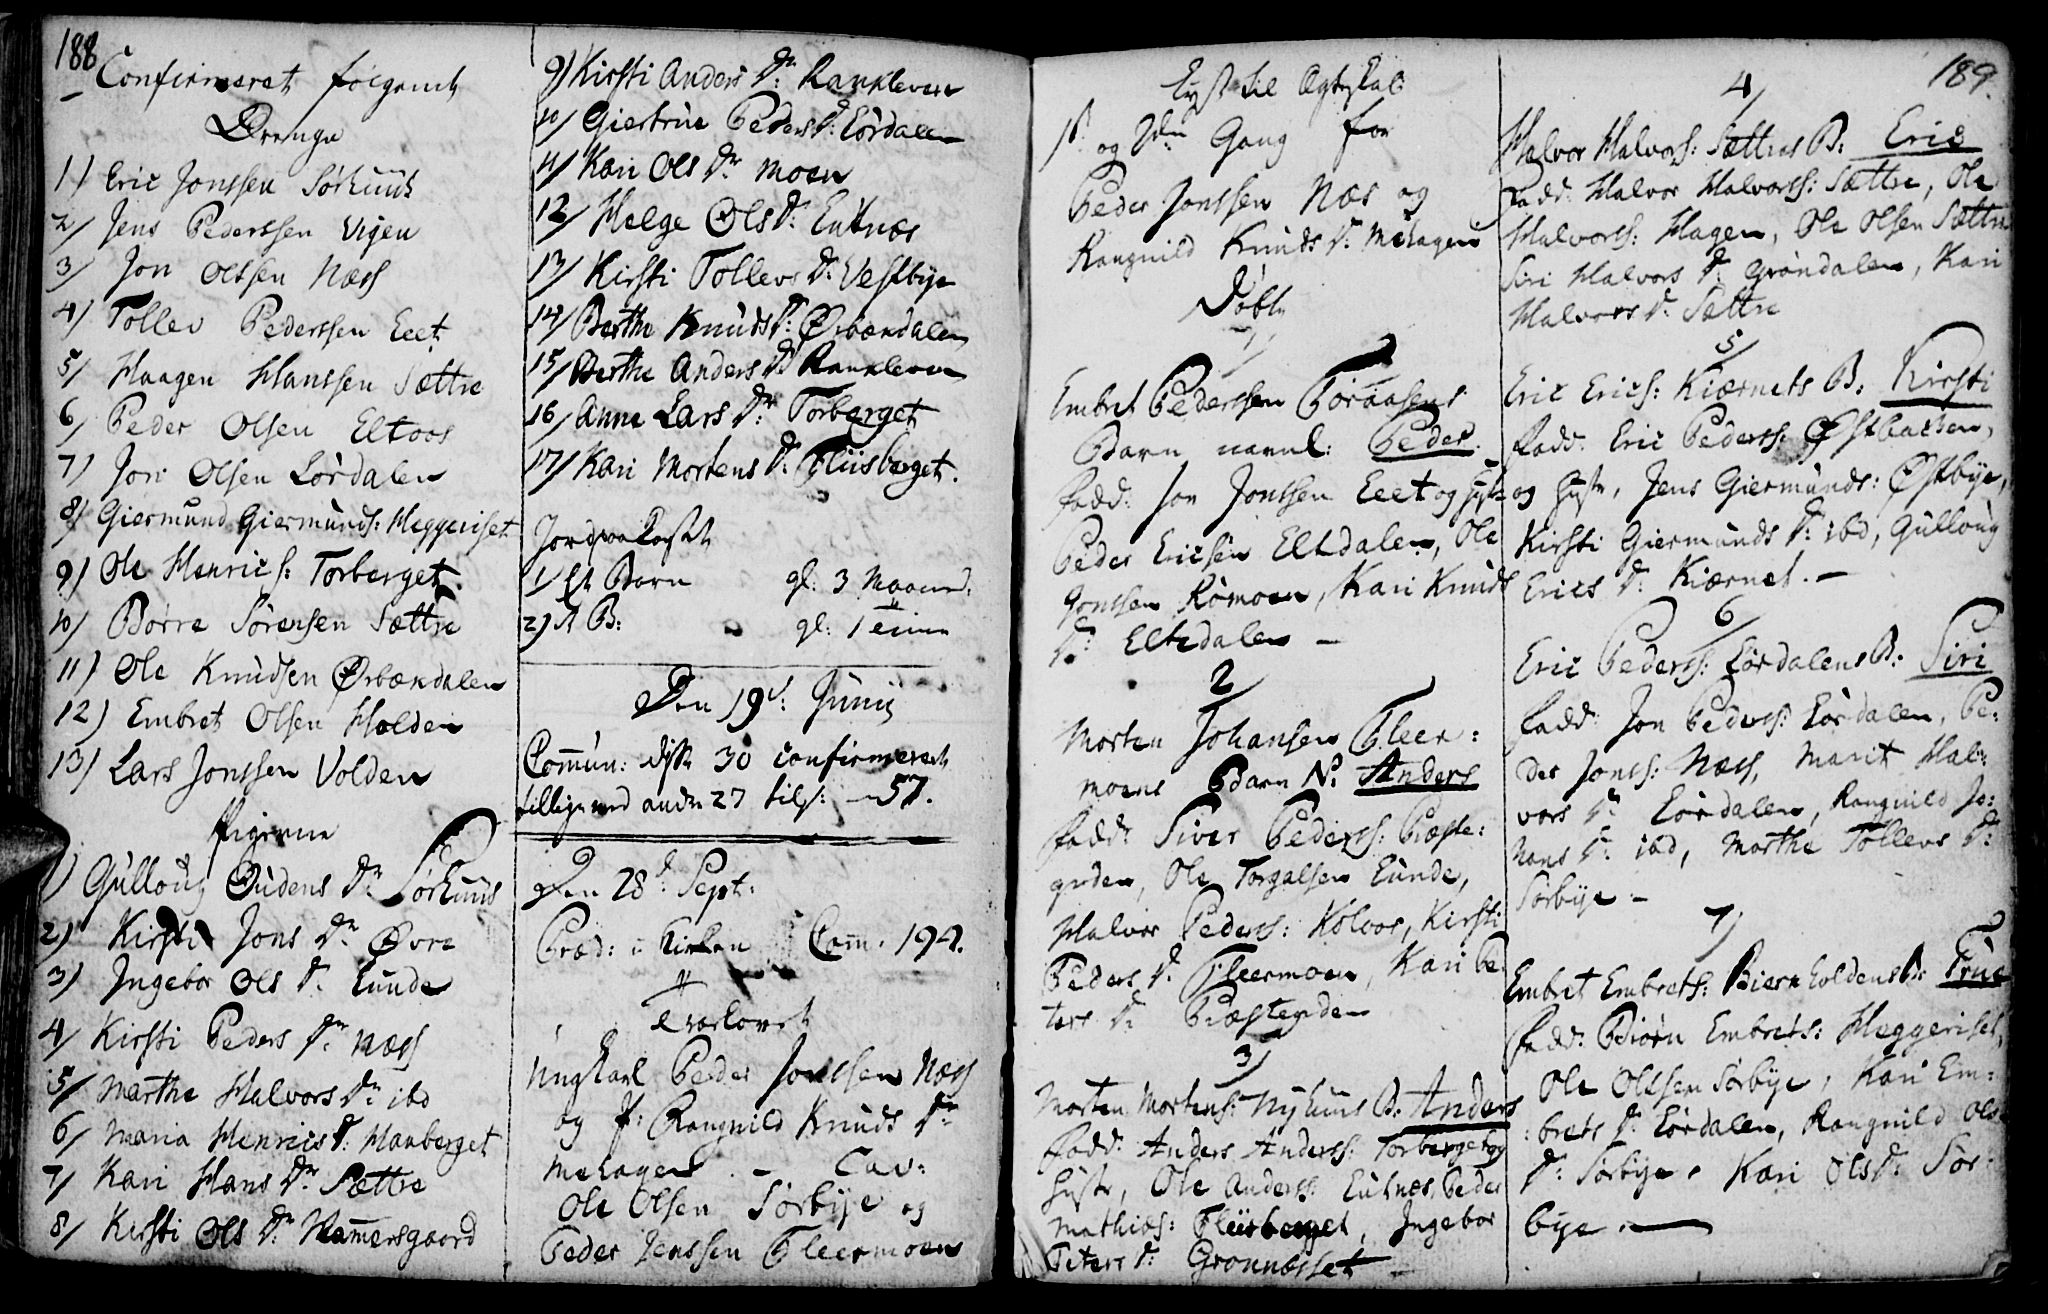 188
Confirmeret følgende
Drenge
1) Eric Jonssen Sørhuus
2) Jens Pederssen Vigen
3) Jon Olssen Næss
4) Tollev Pederssen Eeet
5) Haagen Hanssen Sættre
6) Peder Olsen Eltoos
7) Jon Olsen Lørdalen
8) Giermund Giermunds: Heggeriset
9) Ole Henrics: Torberget
10) Børre Sørensen Sættre
11) Ole Knudsen Ørbændalen
12) Embret Olsen Holden
13) Lars Jonssen Volden
Pigerne
1) Gulloug Oudens Dr Sørhuus
2) Kirsti Jons Dr Øvre
3) Ingebor Ols D. Lunde
4) Kirsti Peders Dr Næss
5) Marthe Halvors Dr ibd
6) Maria Henrics D. Manberget
7) Kari Hans Dr Sættre
8) Kirsti Ols D. Hammersgaard
9) Kirsti Anders Dr: Rankleven
10) Giertrue Peders D. Lørdalen
11) Kari Ols Dr Moen
12) Helge Ols D: Lutnæs
13) Kirsti Tollevs D: Vestbye
14) Berthe Knuds D: Ørbændalen
15) Berthe Anders D Rankleven
16) Anne Lars Dr: Torberget
17) Kari Mortens D: Fliisberget.
Jordpaakastet
1) Et Barn gl: 3 Maaned.
2) Et B: gl: 1
Den 19d: Junij
Commun: 30 confirmerede
tilligemed andre 27 tils: - 57.
Den 28d Sept:
Præd: i Kirken Com. 194.
Trolovet
Ungkarl Peder Jonssen Næss
og P: Rangnild Knuds Dr
Melagen - Cav:
Ole Olsen Sørbye og
Peder Jenssen Fleermoen
189.
Lyst til Ægteskab
1st og 2den Gang for
Peder Jonssen Næs og
Rangnild Knuds D: Melagen
Døbt
1/
Embret Pederssen Foraasens
Barn navnl: Peder.
Fadd: Jon Jonssen Eeet og Hust:
Peder Ericsen Eltdalen, Ole
Jonssen Rømoen, Kari Knuds
D: Eltdalen -
2/
Morten Johansen Fleer:
moens Barn N: Anders
Fadd: Siver Peders: Præste:
grden, Ole Torgalsen Lunde,
Halvor Peders: Kolvos, Kirsti
Peders D. Fleermoen, Kari Pe
ters D. Præstegrden
3/
Morten Mortens: Nyhuus B: Anders
Fadd: Anders Anders: Torberget og
Hustr, Ole Anders: Lutnæs, Peder
Mathias: Fliisberget, Ingebor
Peters D: Gronnæsset -
4/
Halvor Halvors: Sættres B: Eric
Fadd: Halvor Halvors: Sættre, Ole
Halvors: Hagen, Ole Olsen Sættre
Siri Halvors D: Grøndalen, Kari
Halvors D. Sættre
5/
Eric Erics: Kiærnets B: Kirsti
Fadd: Eric Peders: Østbacken,
og Hustr, Jens Giermunds: Østbye,
Kirsti Giermunds D: ibd, Gulloug
Erics D. Kiærnet. -
6/
Eric Peders: Lørdalens B: Siri
Fadd: Jon Peders: Lørdalen, Pe:
der Jons: Næss, Marit Hal:
vors D. Lørdalen, Rangnild Jo:
hans D: ibd, Marthe Tollevs D:
Sørbye -
7/
Embret Embrets: Biørnholdens B: True
Fadd: Biørn Embrets: Heggeriset,
Ole Olssen Sørbye, Kari Em:
brets D. Lørdalen, Rangnild Ols
D: Sørbye, Kari Ols D: Sør:
bye. -